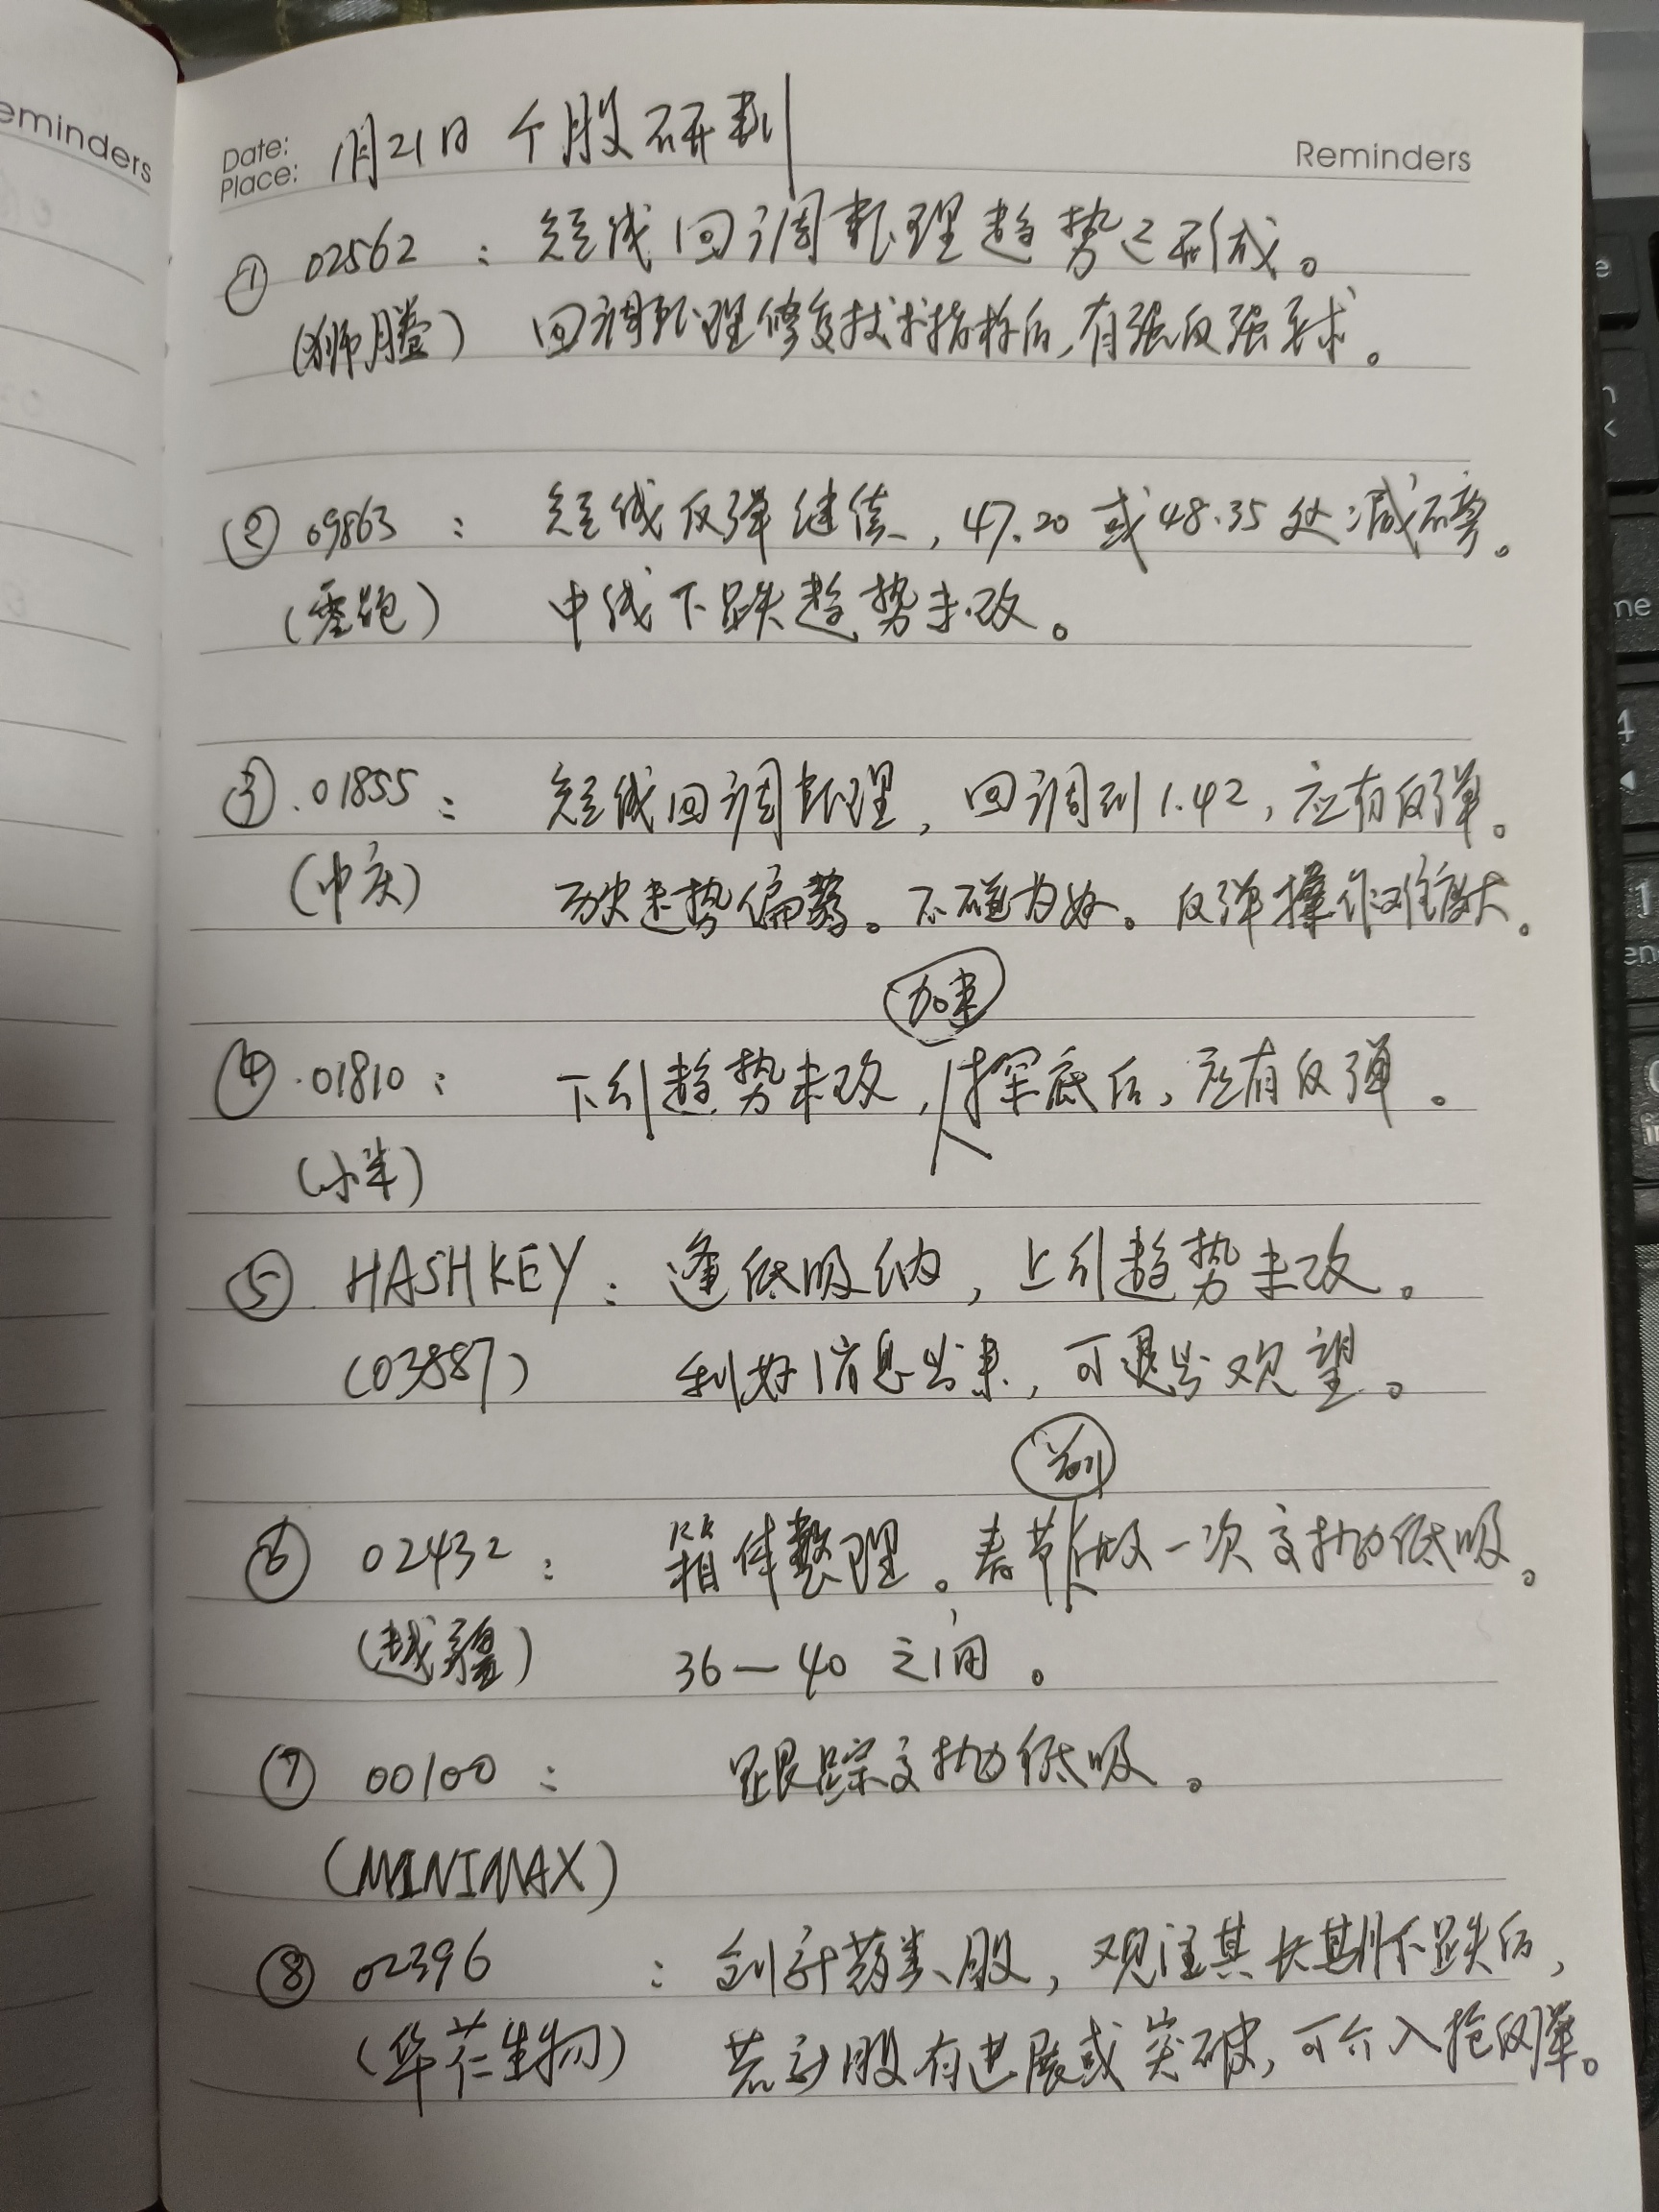 Reminders
Date:
Place:
1月21日 个股研判
Reminders
① 02562 : 短线回调整理趋势已形成。
(狮腾) 回调整理修复技术指标后,有强反强要求。
② 09863 : 短线反弹继续,47.20或48.35处减磅。
(零跑) 中线下跌趋势未改。
③ 01855 : 短线回调整理,回调到1.42,应有反弹。
(中庆) 历史走势偏弱。不碰为好。反弹操作难度大。
④ 01810 : 下引趋势未改,加速探底后,应有反弹。
(小米)
⑤ HASHKEY : 逢低吸纳,上引趋势未改。
(03887) 利好消息出来,可退出观望。
⑥ 02432 : 箱体整理。春节前做一次高抛低吸。
(越疆) 36—40之间。
⑦ 00100 : 跟踪高抛低吸。
(MINIMAX)
⑧ 02396 : 创新药类股,观注其长期下跌后,
(华芢生物) 若新股有进展或突破,可介入抢反弹。